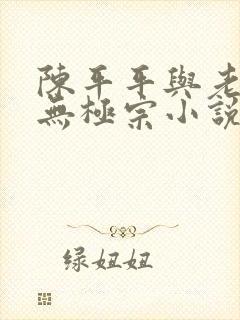 陳平平與老
無極宗小說
绿妞妞